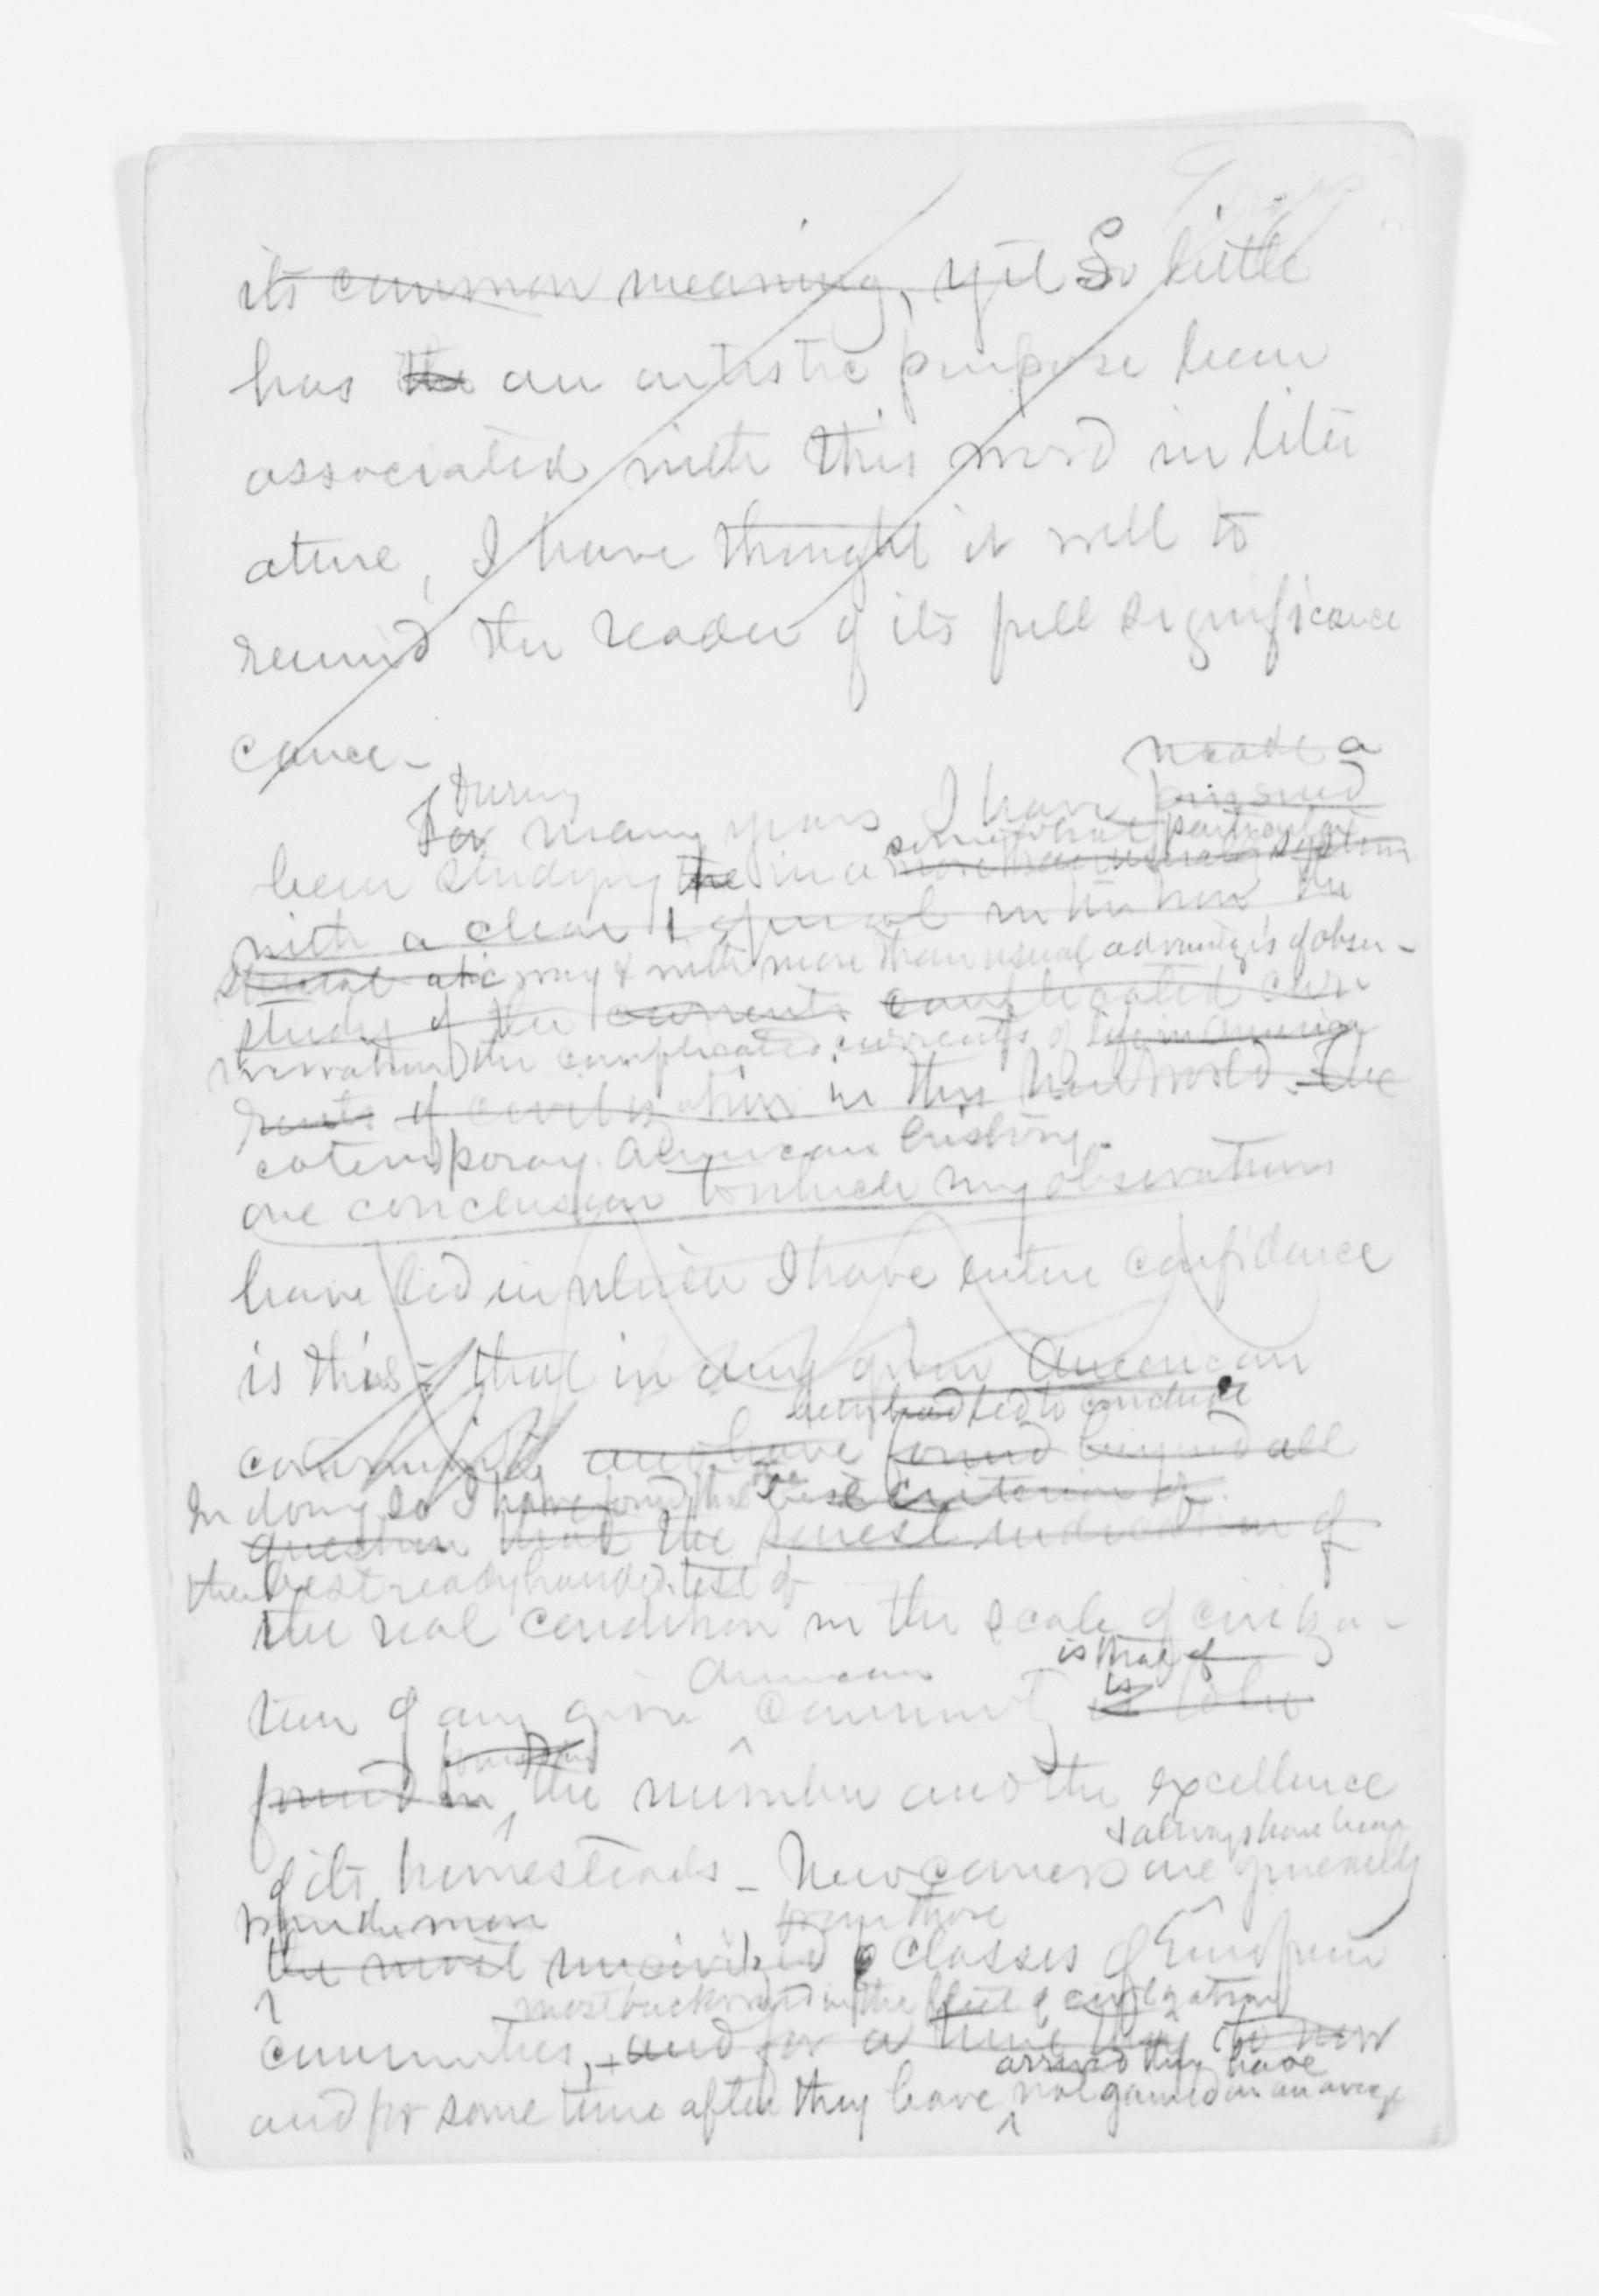 its common meaning, yet So little
has the an artistic purpose been
associated with this word in liter
ature, I have thought it well to
remind the reader of its full significance
cance -
made a
During
For many years I have pursued
somewhat particular
been studying the in a more than usual system
with a clear & special the
atic way & with more than usual advantages of obser-
study of the currents complicated cur
vation the complicated currents of life in America
rents of civilization in this New World. The
cotemporary American history.
one conclusion to which my observations
have led in which I have entire confidence
is this - that in any given American
been had led to conclude
community and have found beyond all
In doing so I have found that the best criterion of
question that the surest indication of
the best ready handed test of
the real condition in the scale of civiliza-
is that of
American is
tion of any given community is to be
found in the number and the excellence
& always have been
of its homesteads - New comers are generally
from those
the most uncivilized classes of European
most backward in the of civilization
communities, + and for a time they to new
arrived they have
and for some time after they have not gained on an average